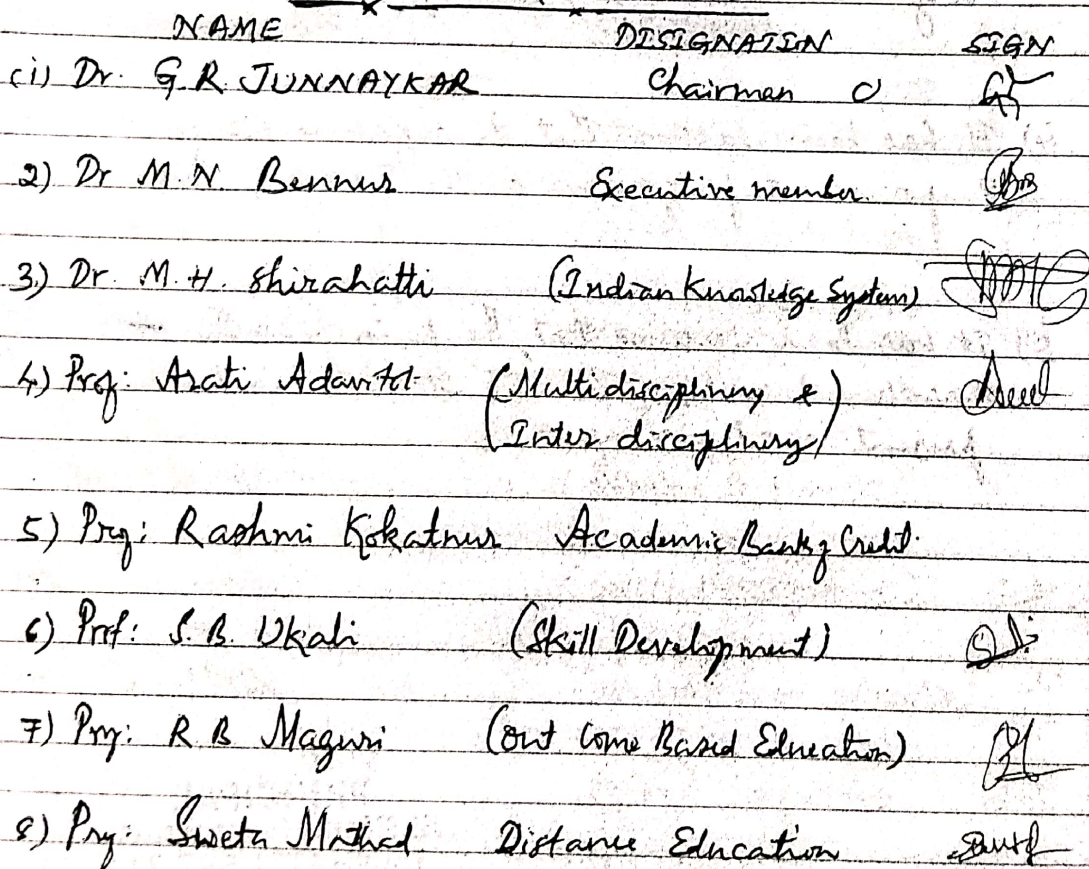 NAME DESIGNATION SIGN
(i) Dr. G.R. JUNNAYKAR Chairman
2) Dr M.N. Bennur Executive member.
3) Dr. M.H. Shirahatti (Indian Knowledge System)
4) Prof: Arati (Multi disciplinery &
Inter disciplinery)
5) Prof: Rashmi Kokatnur Academic Bank of Credit.
6) Prof: S.B. Ukali (Skill Development)
7) Prof: R.B Maguri (Out Come Based Education)
8) Prof: Sweta Mathad Distance Education